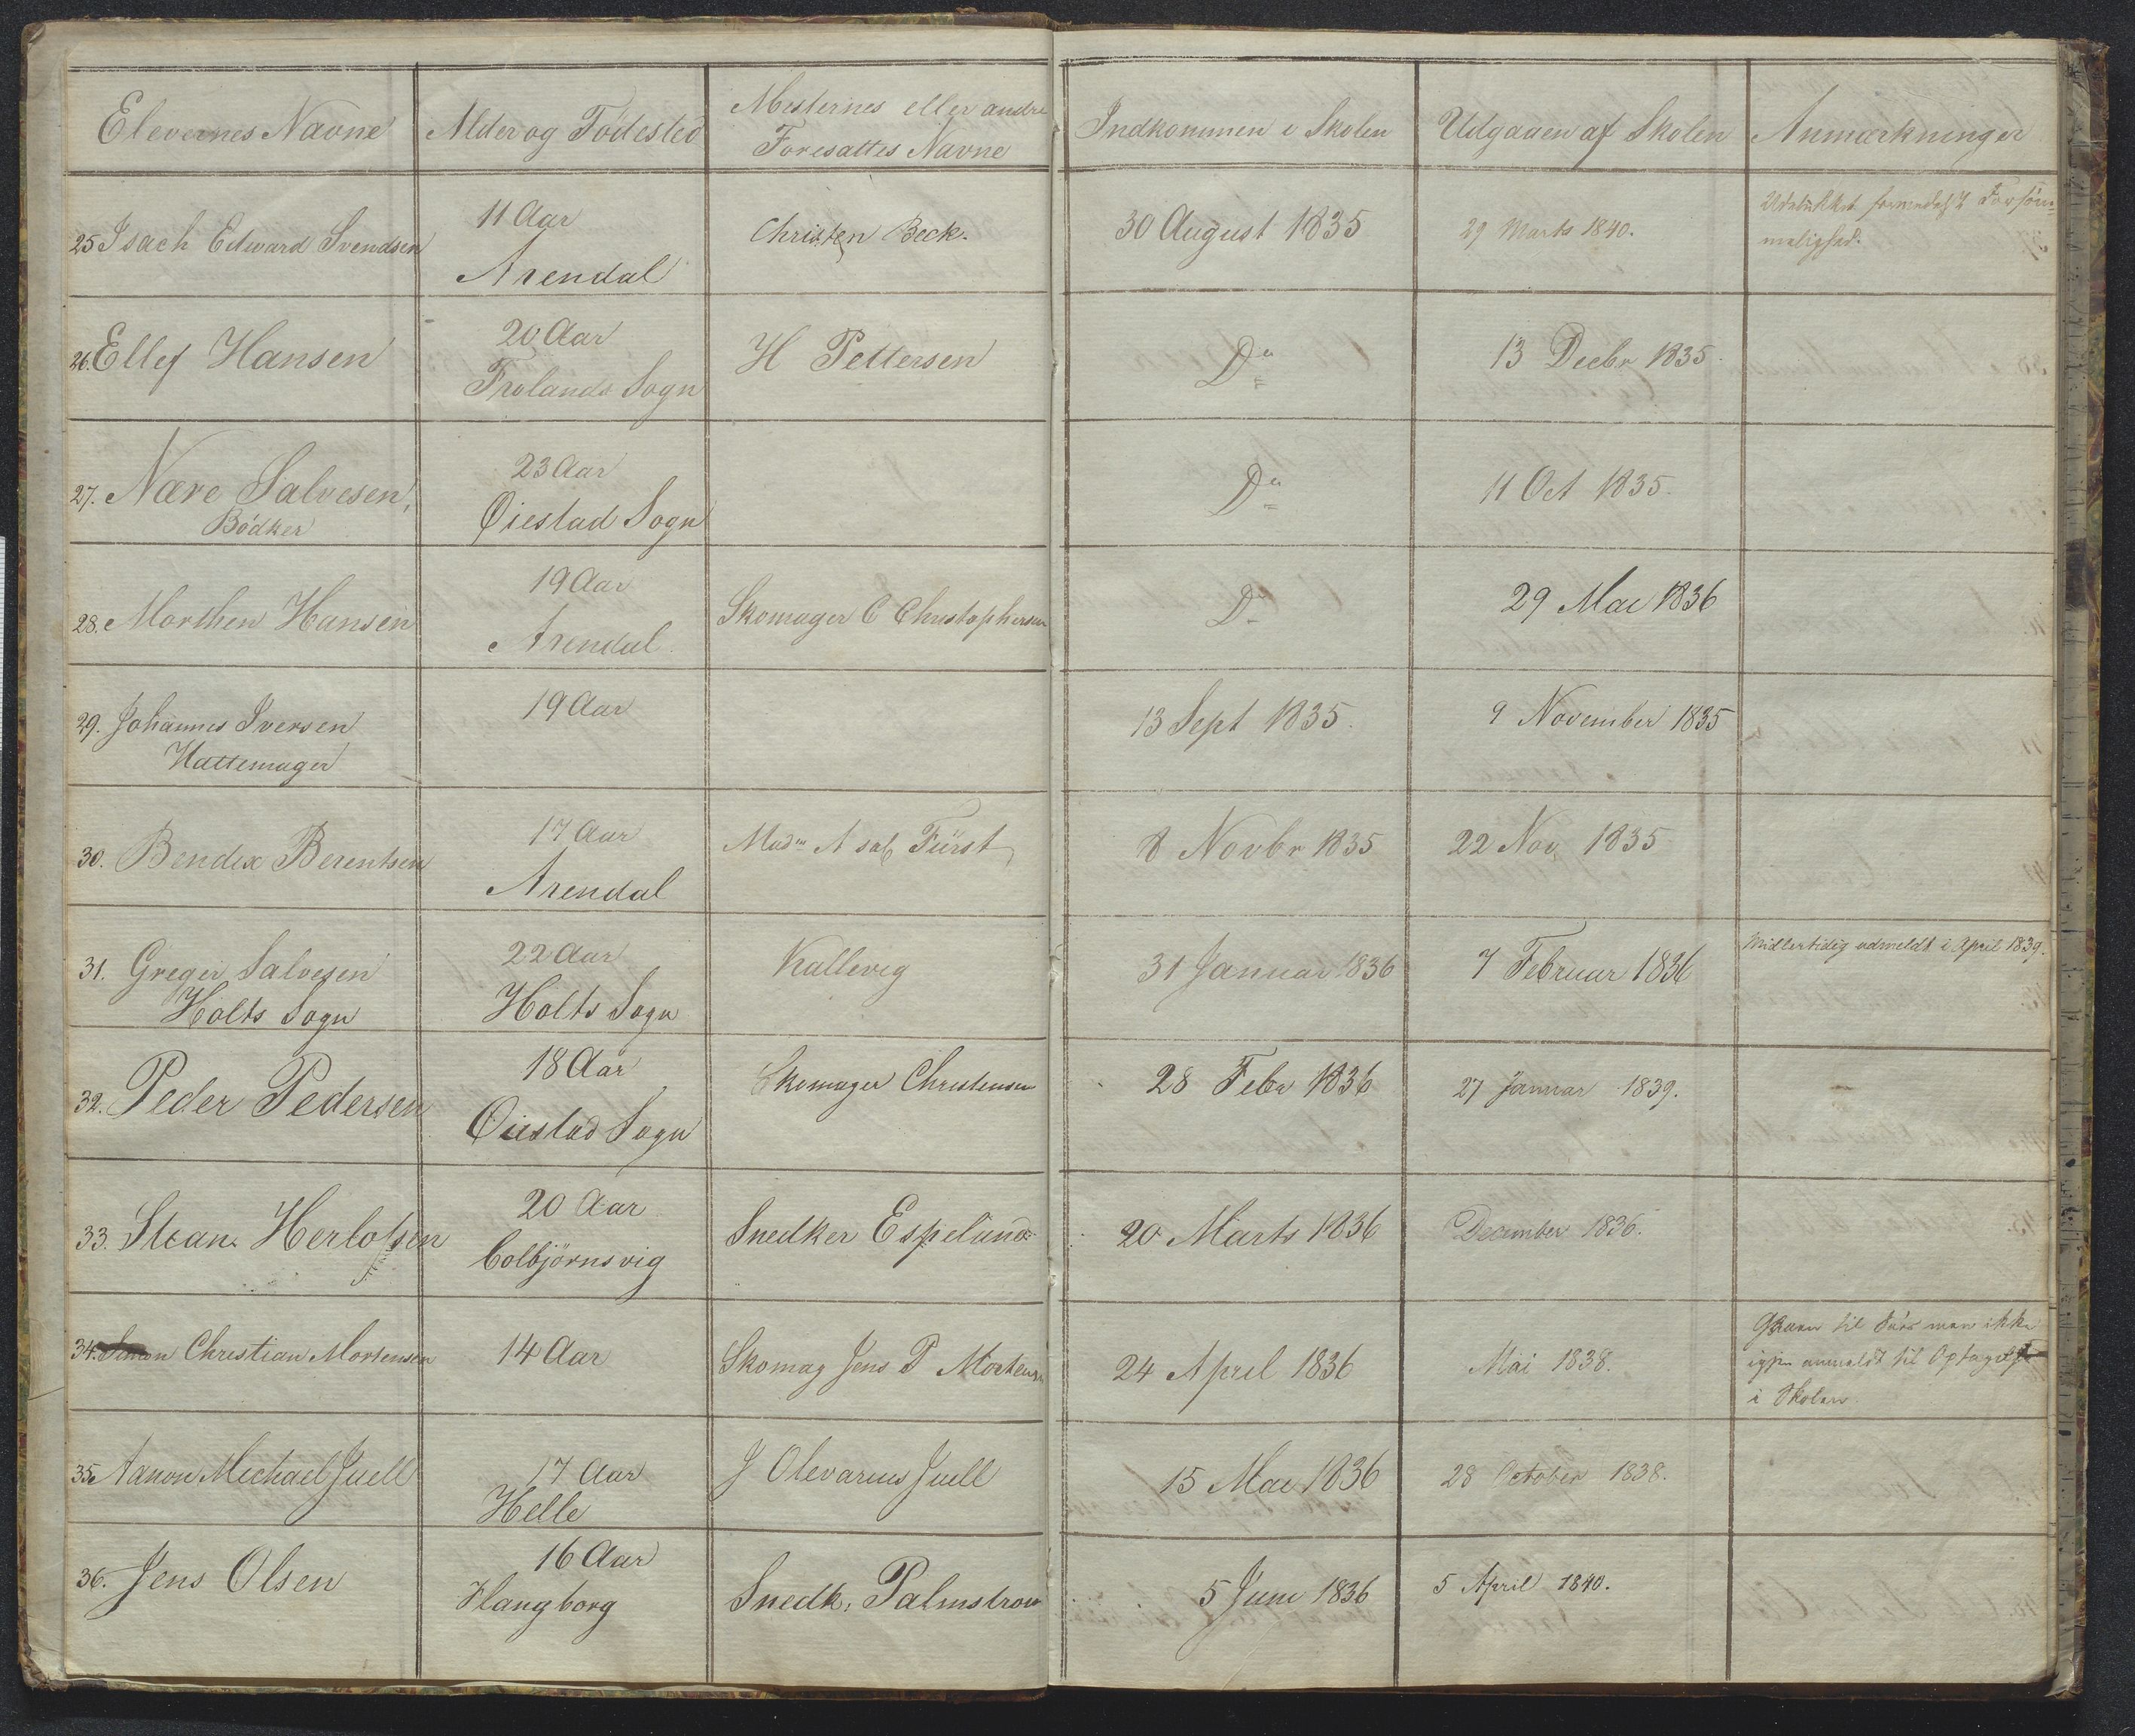 Elevernes Navne
Alder og Födested
Mesternes eller andre
Foresattes Navne
Indkommen i Skolen
Udgaaen af Skolen
Anmærkninger
25 Isach Edward Svendsen
11 Aar
Arendal
Christen Beck.
30 August 1835
29 Marts 1840.
Udslukket formedelst Forsöm-
melighed.
26. Ellef Hansen
20 Aar
Frolands Sogn
H Pettersen
Do
13 Decbr 1835.
27. Nære Salvesen,
Bödker
23 Aar
Øiestad Sogn
Do
11 Oct 1835.
28. Morthen Hansen
19 Aar
Arendal
Skomager C Christophersen
Do
29 Mai 1836
29. Johannes Iversen
Hattemager
19 Aar
13 Sept 1835.
9 November 1835
30. Bendix Berentsen
17 Aar
Arendal
Madm A sal Fürst
8 Novbr 1835
22 Nov, 1835
31. Greger Salvesen
Holts Sogn
22 Aar
Holts Sogn
Kallevig
31 Januar 1836
7 Februar 1836
Midlertidig udmeldt i April 1839.
32. Peder Pedersen
18 Aar
Øiestad Sogn
Skomager Christensen
28 Febr 1836
27 Januar 1839.
33. Stean Herlofsen
20 Aar
Colbjörnsvig
Snedker Espelund
20 Marts 1836
December 1836.
34. Simon Christian Mortensen
14 Aar
Skomag Jens P Mortensen
24 April 1836
Mai 1838.
til Søes men ikke
igjen anmeldt til Optagelse
i Skolen
35. Aanon Michael Juell
17 Aar
Helle
J Olevarius Juell
15 Mai 1836
28 October 1838.
36. Jens Olsen
16 Aar
Hangborg
Snedk. Palmstrom
5 Juni 1836
5 April 1840.